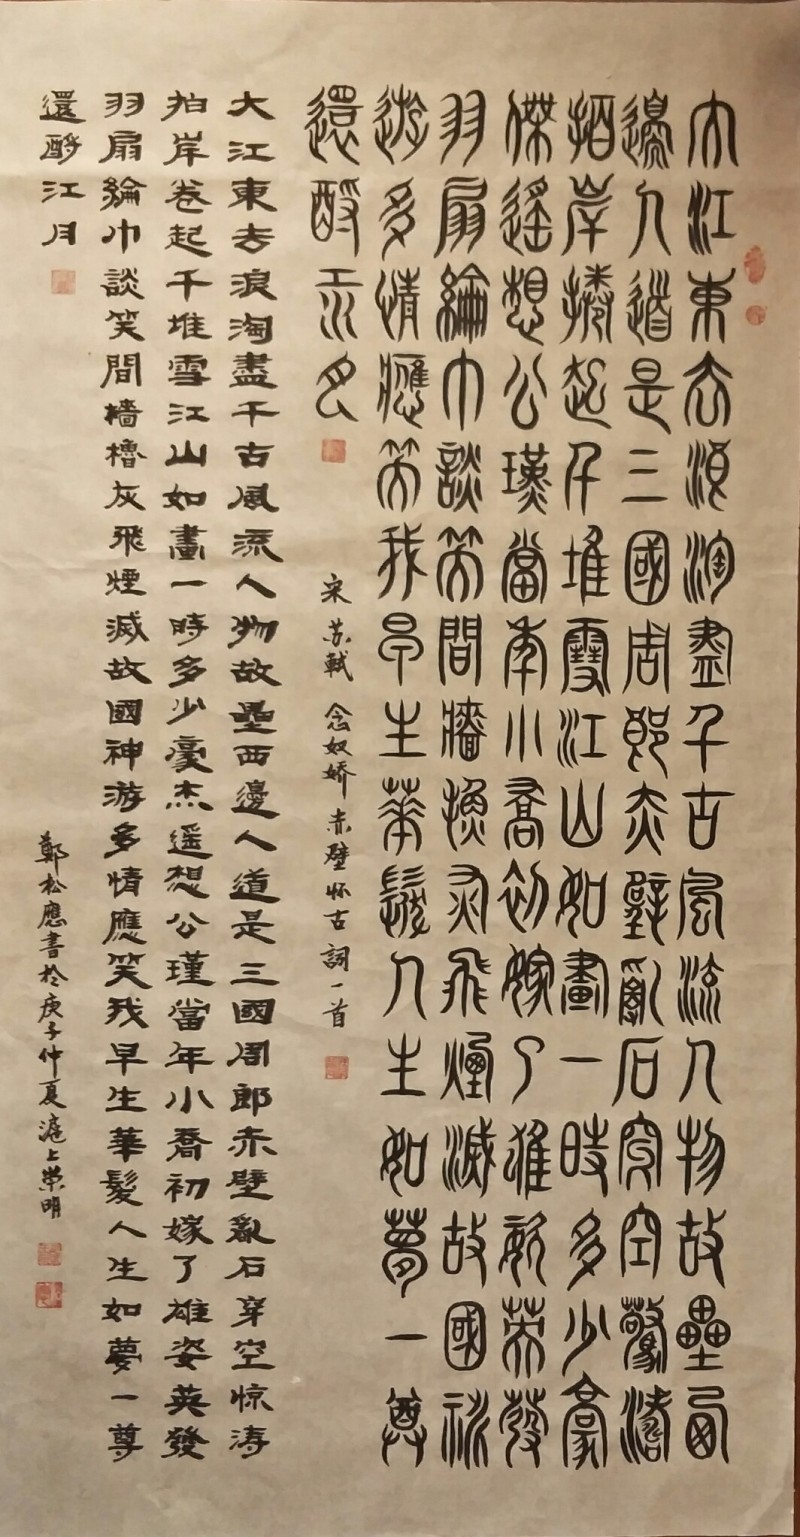 大江東去浪淘盡千古風流人物故壘西
邊人道是三國周郎赤壁亂石穿空驚濤
拍岸捲起千堆雪江山如畫一時多少豪
傑遙想公瑾當年小喬初嫁了雄姿英發
羽扇綸巾談笑間牆櫓灰飛煙滅故國神
遊多情應笑我早生華髮人生如夢一尊
還酹江月
宋 苏軾 念奴娇 赤壁怀古 詞一首
大江東去浪淘盡千古風流人物故壘西邊人道是三國周郎赤壁亂石穿空惊涛
拍岸卷起千堆雪江山如畫一時多少豪杰遥想公瑾當年小喬初嫁了雄姿英發
羽扇綸巾談笑間檣櫓灰飛煙滅故國神游多情應笑我早生華髮人生如夢一尊
還酹江月
鄭松應書於庚子仲夏滬上崇明